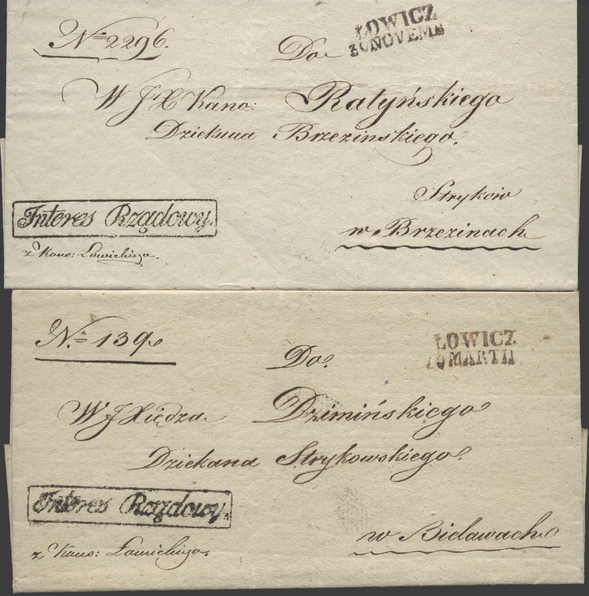 ŁOWICZ
30 NOVEMB
No 2296.
Do
W J X Kano: Ratyńskiego
Dziekana Brzezinskiego.
Stryków
w Brzezinach
Interes Rządowy.
z Kano: Łowickiego.
ŁOWICZ
10 MARTII
No 139.
Do.
W J Xiędza Dzimińskiego
Dziekana Strykowskiego.
Interes Rządowy.
w Bielawach
z Kano: Łowickiego.